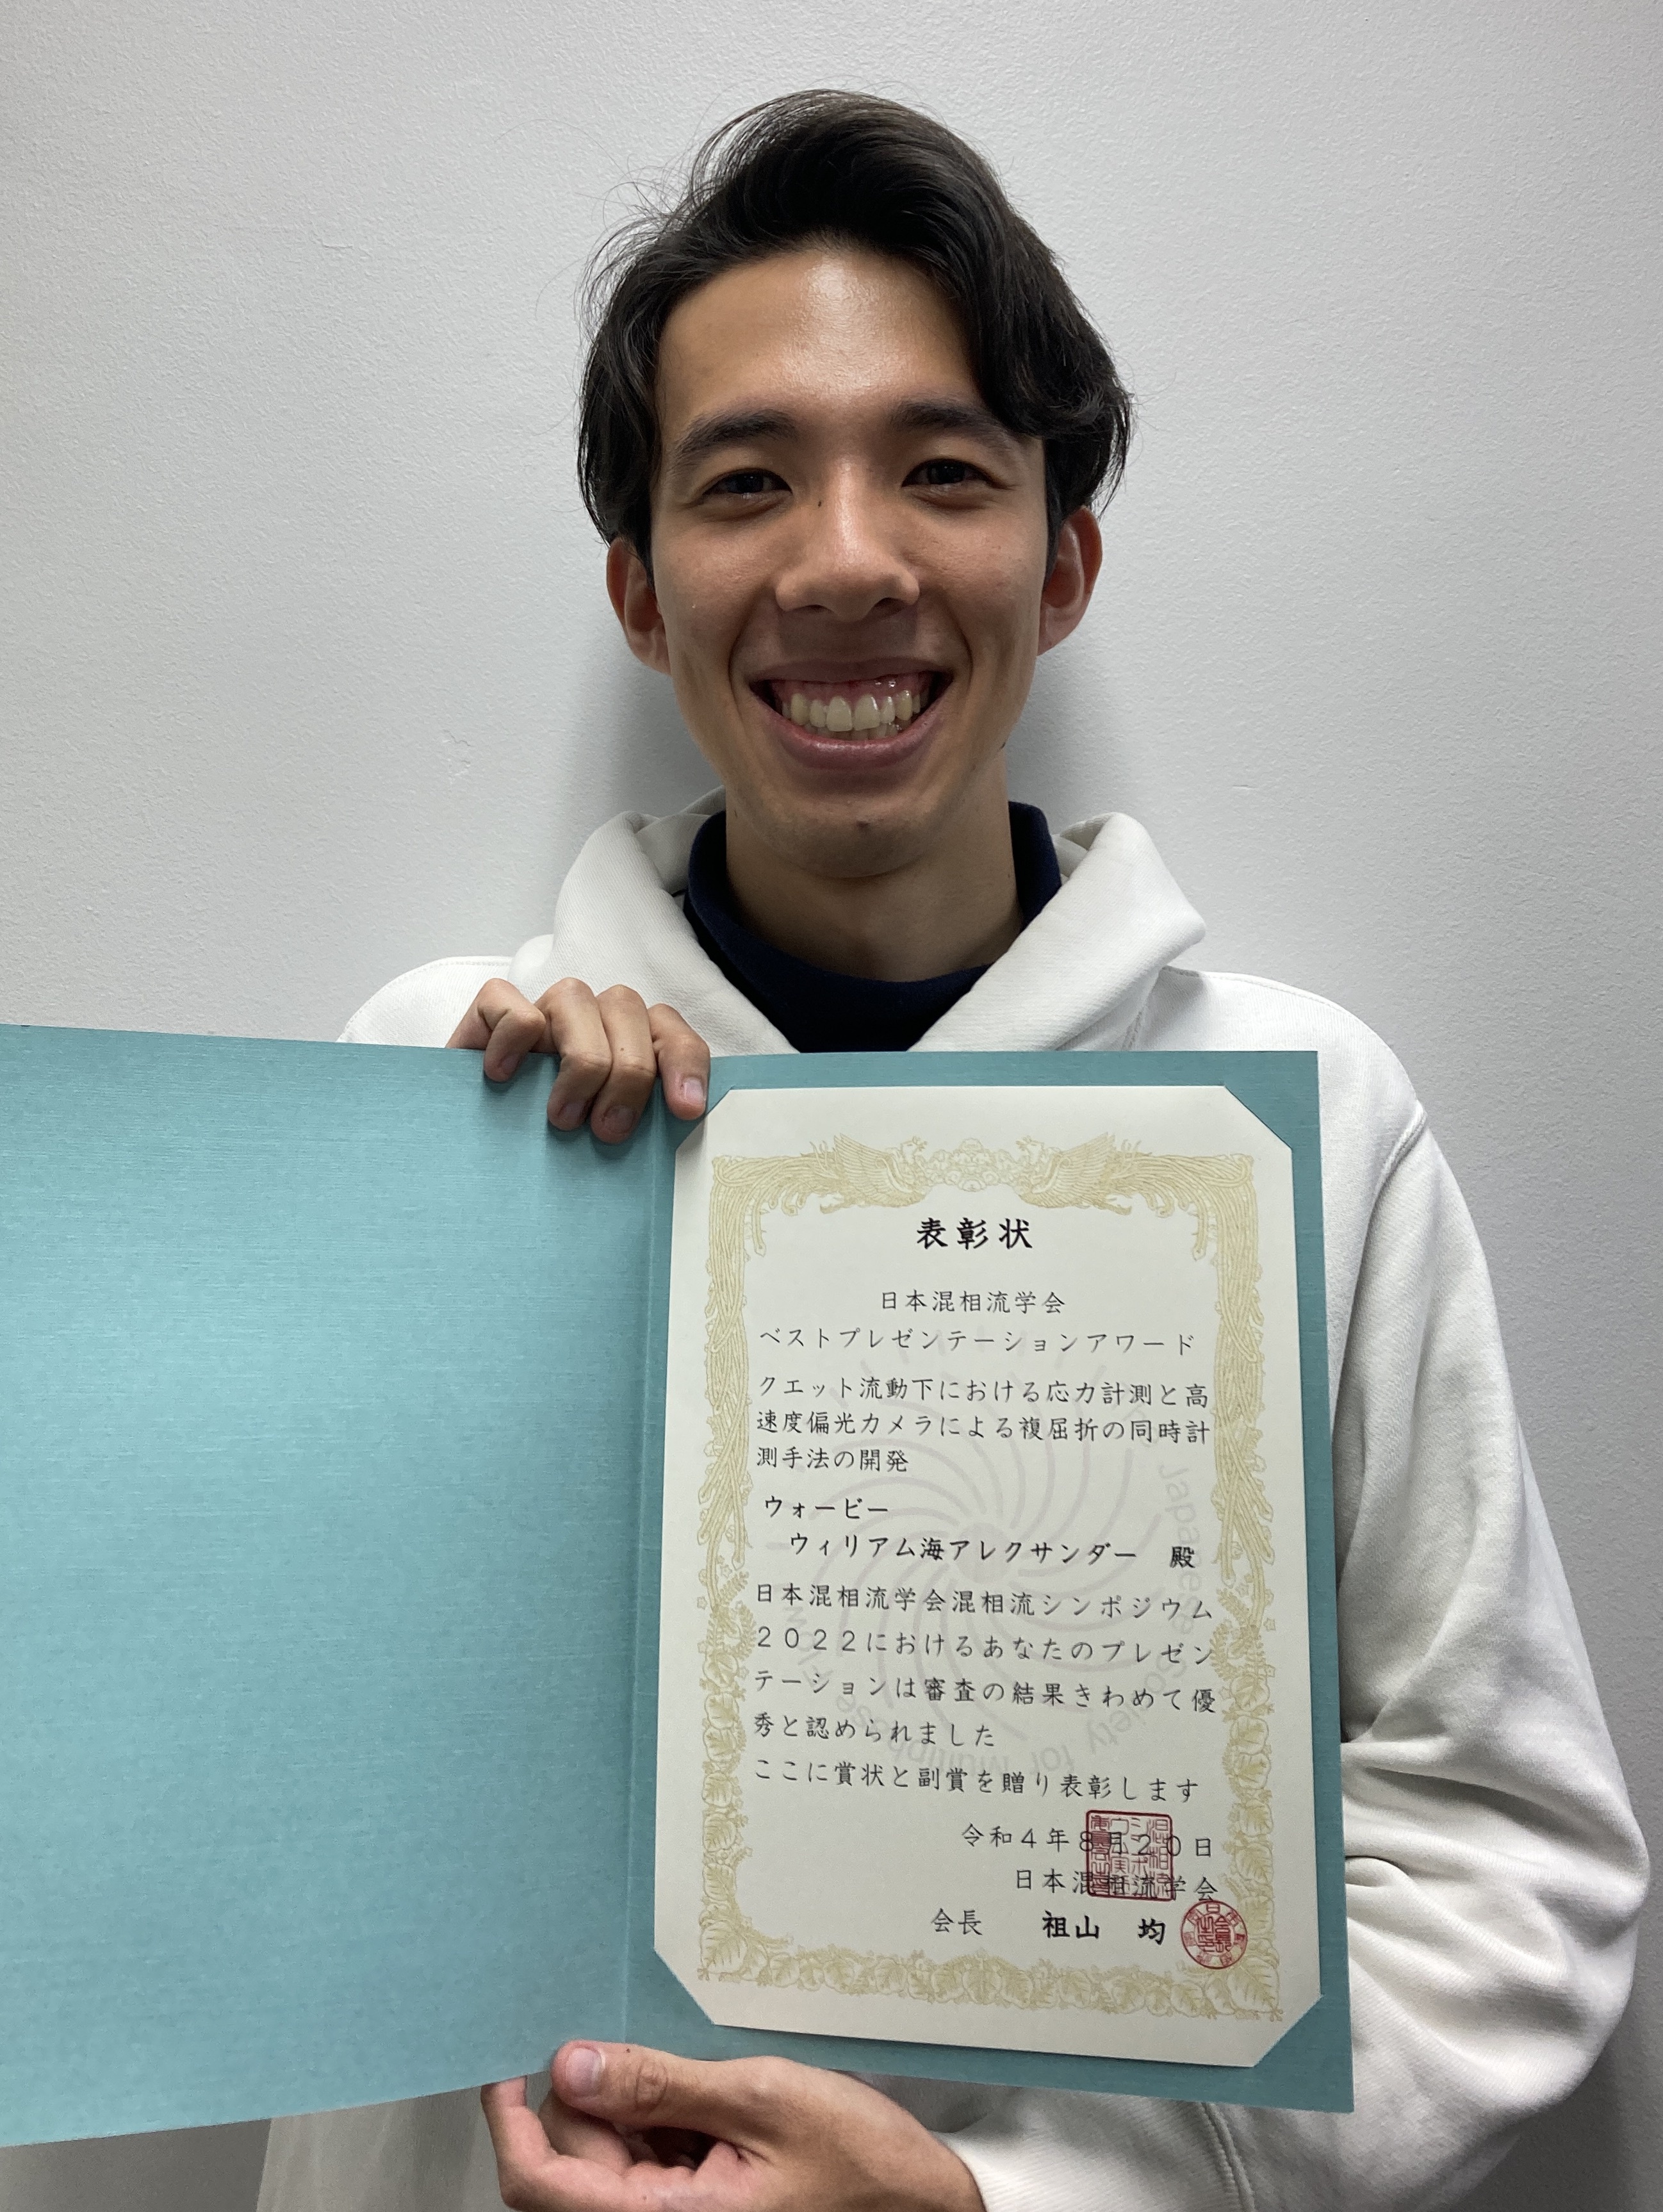 表彰状
日本混相流学会
ベストプレゼンテーションアワード
クエット流動下における応力計測と高
速度偏光カメラによる複屈折の同時計
測手法の開発
ウォービー
ウィリアム海アレクサンダー 殿
日本混相流学会混相流シンポジウム
２０２２におけるあなたのプレゼン
テーションは審査の結果きわめて優
秀と認められました
ここに賞状と副賞を贈り表彰します
令和４年８月２０日
日本混相流学会
会長 祖山 均